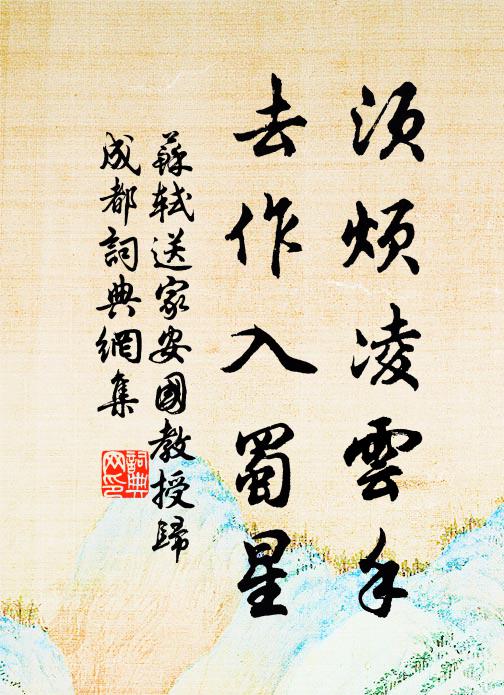 須煩凌雲手
去作入蜀星
蘇軾送家安國教授歸
成都詞典網集
詞典網印